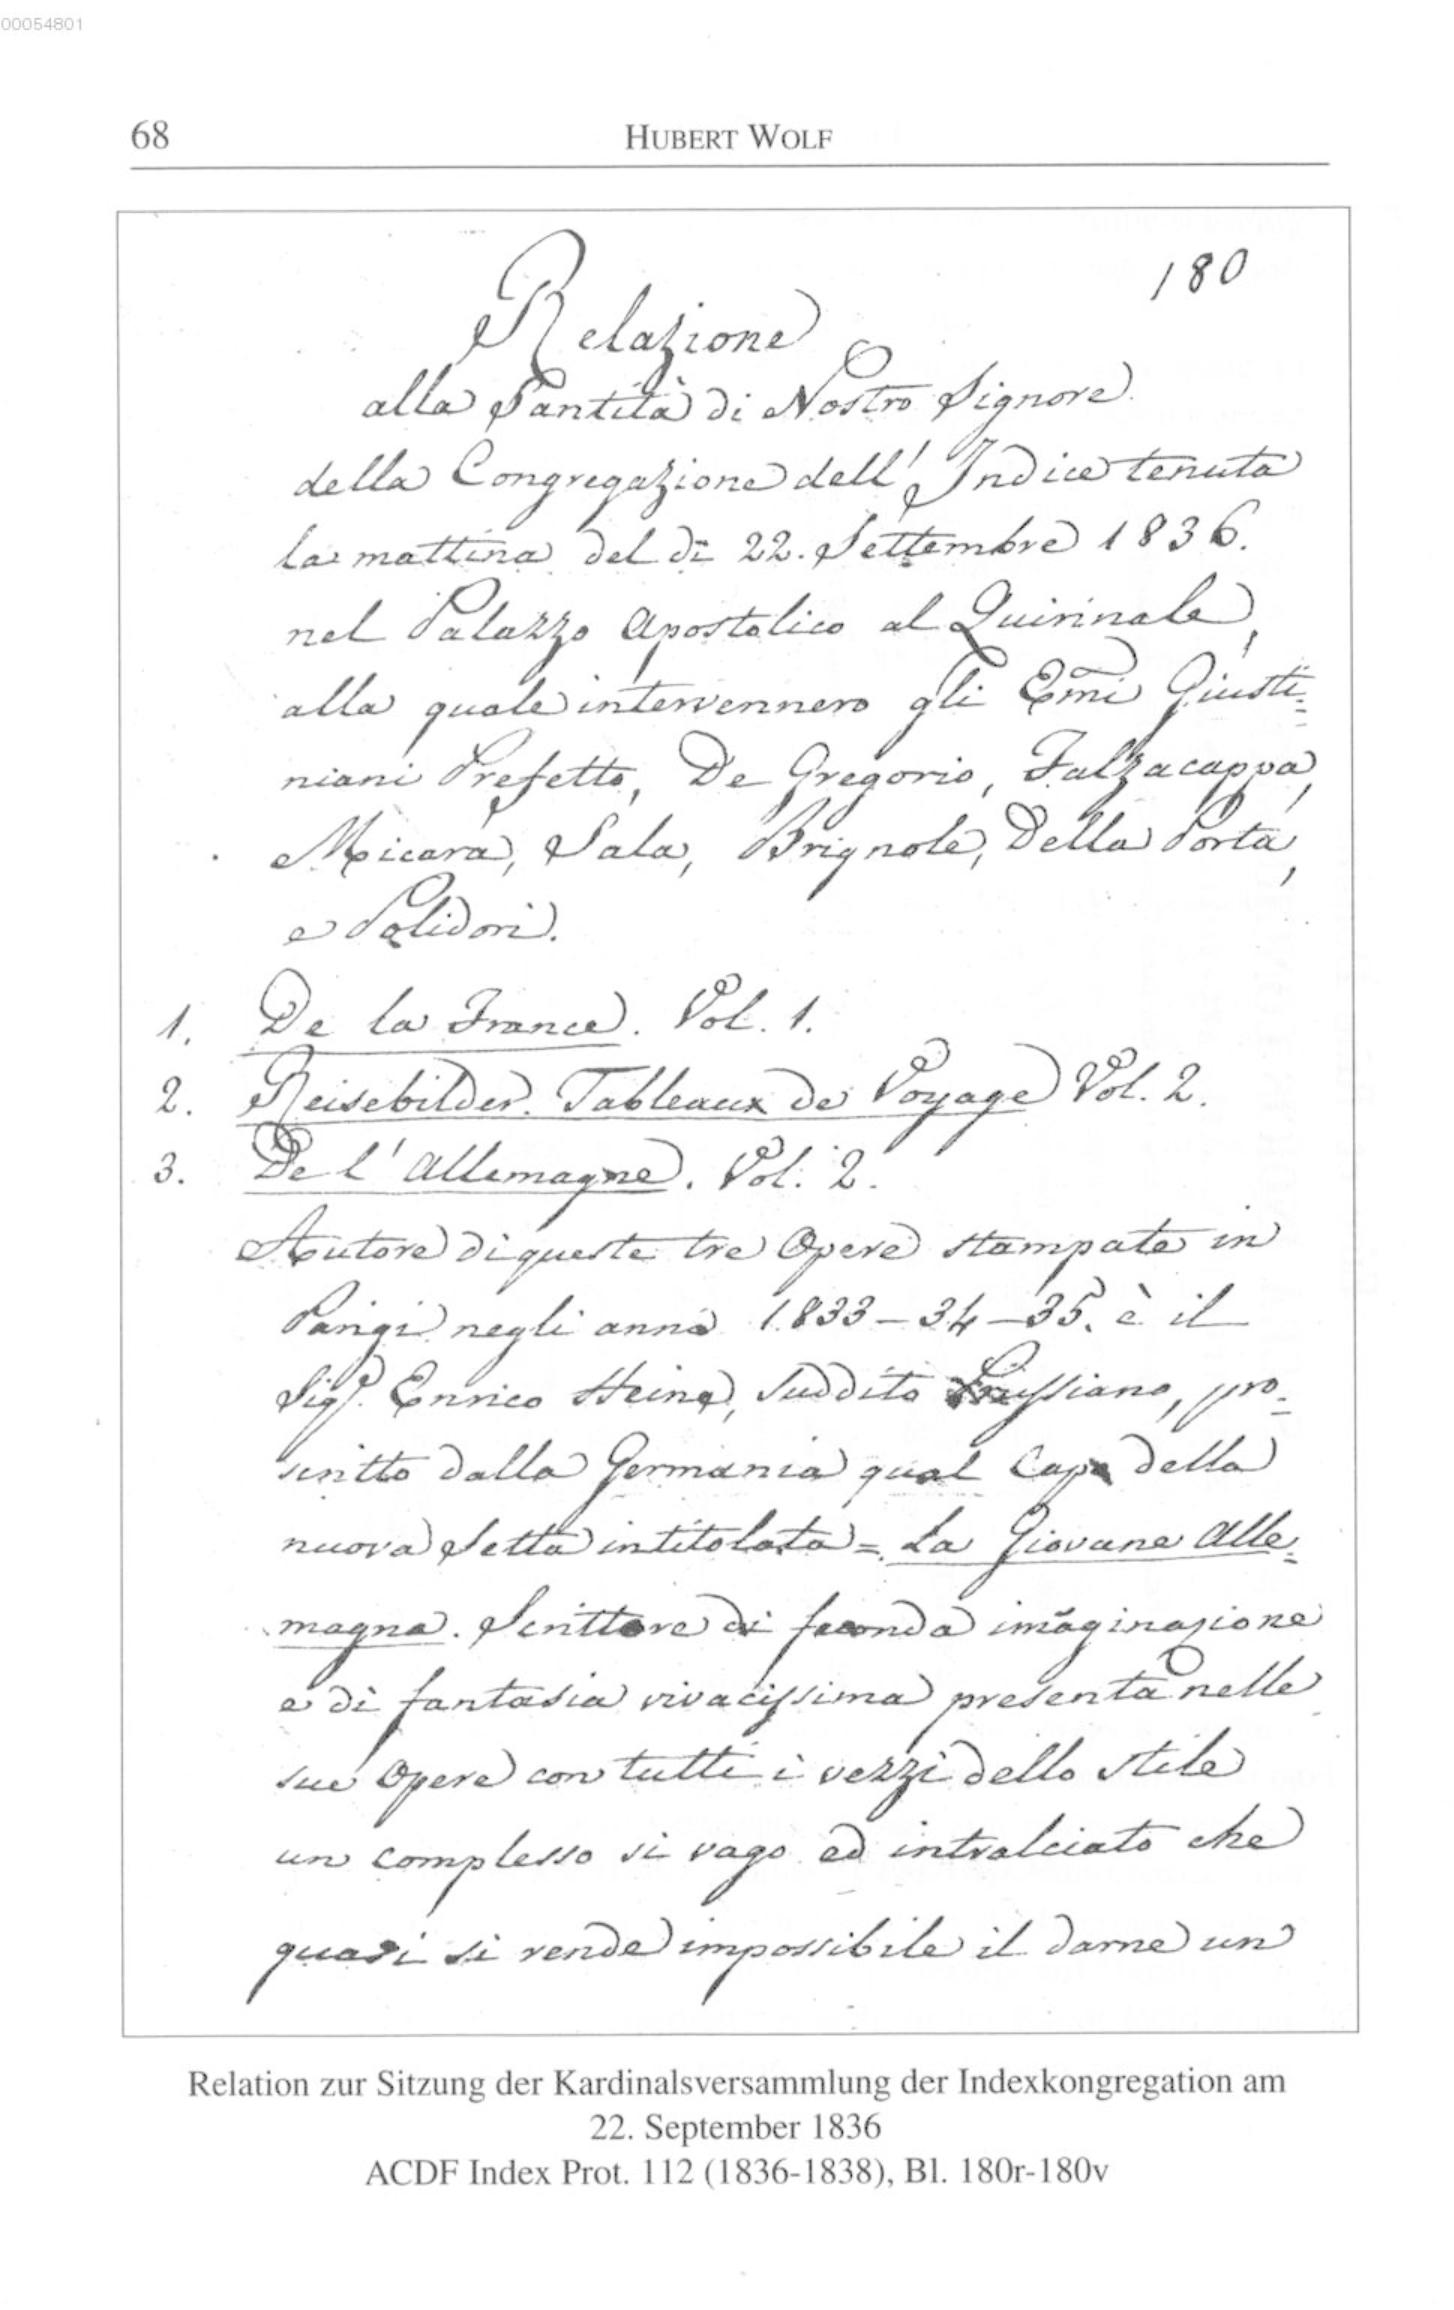 00054801
68
HUBERT WOLF
180
Relazione
alla Santità di Nostro Signore
della Congregazione dell' Indice tenuta
la mattina del dì 22. Settembre 1836.
nel Palazzo Apostolico al Quirinale,
alla quale intervennero gli Emi Giusti=
niani Prefetto, De Gregorio, Falzacappa,
Micara, Sala, Brignole, Della Porta,
e Polidori.
1. De la France. Vol. 1.
2. Reisebilder. Tableaux de Voyage Vol. 2.
3. De l' Allemagne. Vol. 2.
Autore di queste tre Opere stampate in
Parigi negli anni 1833–34–35. è il
Sigr. Enrico Heine, suddito Prussiano, pro=
scritto dalla Germania qual Capo della
nuova Setta intitolata = La Giovane Alle=
magna. Scrittore di feconda imãginazione
e di fantasia vivacissima presenta nelle
sue Opere con tutti i vezzi dello stile
un complesso sì vago ed intralciato che
quasi si rende impossibile il darne un
Relation zur Sitzung der Kardinalsversammlung der Indexkongregation am
22. September 1836
ACDF Index Prot. 112 (1836-1838), Bl. 180r-180v